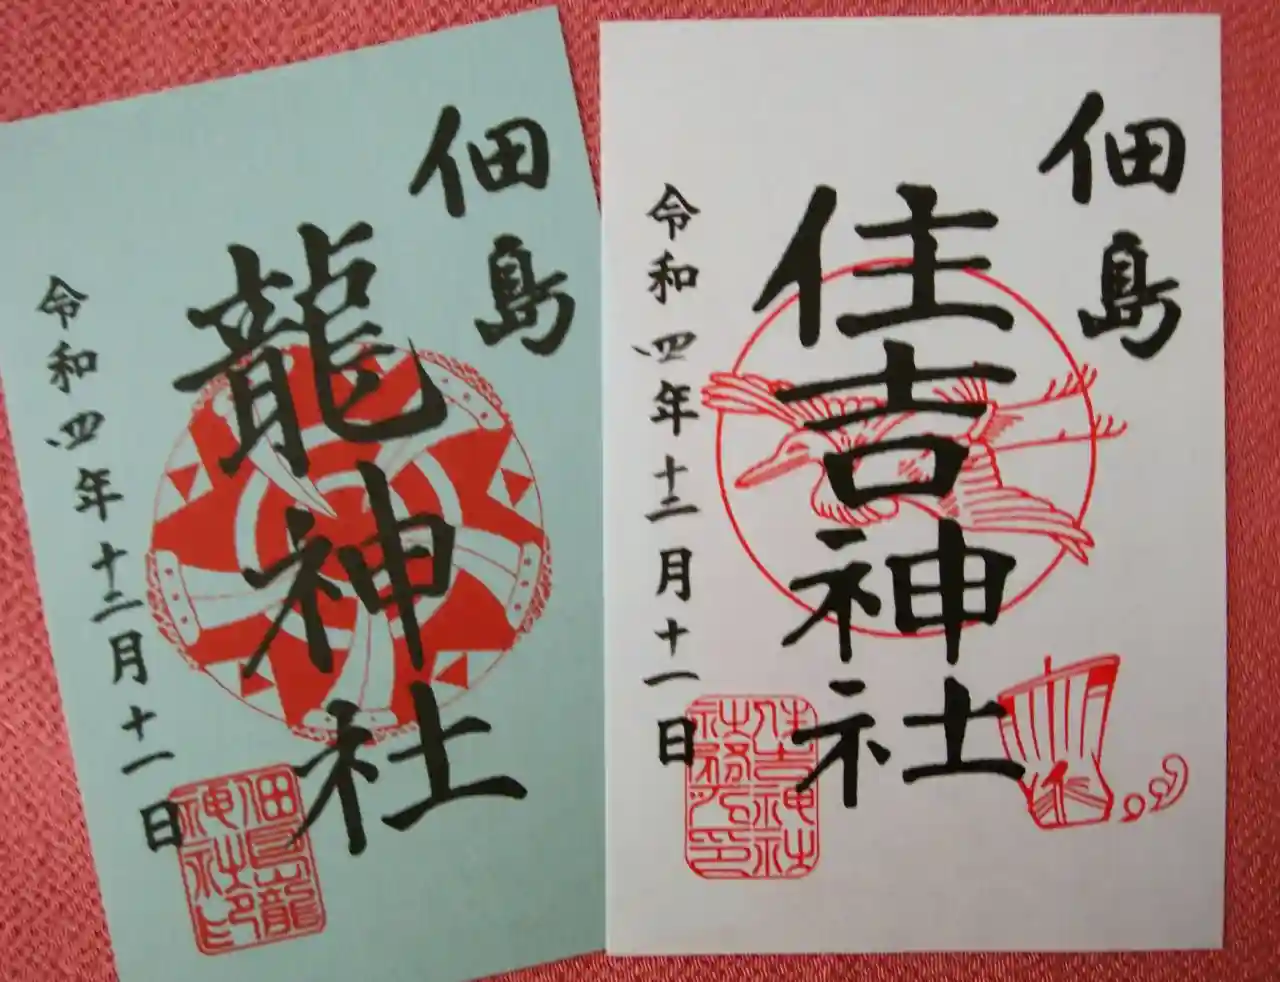 佃島
住吉神社
令和四年十二月十一日
住吉神社
社務所印
佃島
龍神社
令和四年十二月十一日
佃島龍
神社印